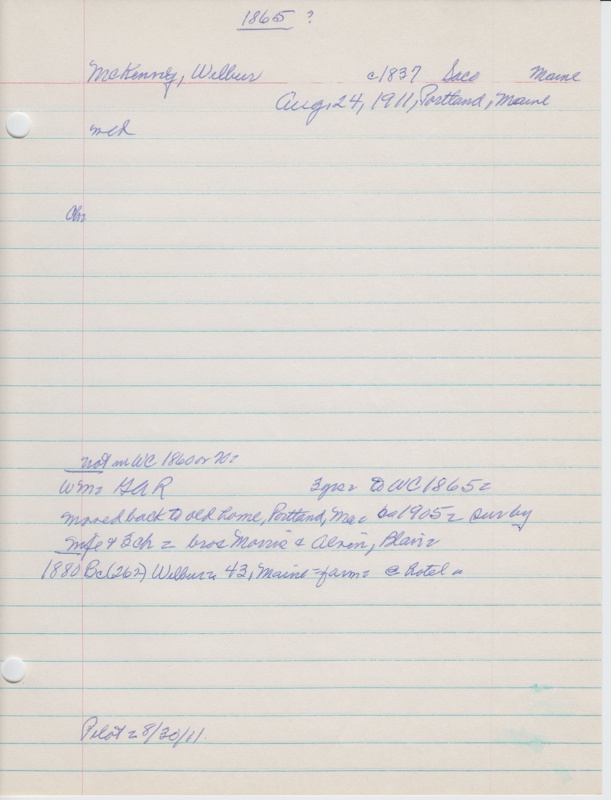 1865 ?
McKenney, Wilbur c1837 Saco Maine
Aug. 24, 1911, Portland, Maine
med
Ch=
not in WC 1860 or 70=
wm= GAR 3 yrs= to WC 1865=
moved back to old home, Portland, Me= 1905= sur by
wife & 3 ch= bros Morris & Alvin, Blair=
1880 BC (262) Wilbur= 43, Maine= farm= @ hotel =
Pilot= 8/30/11